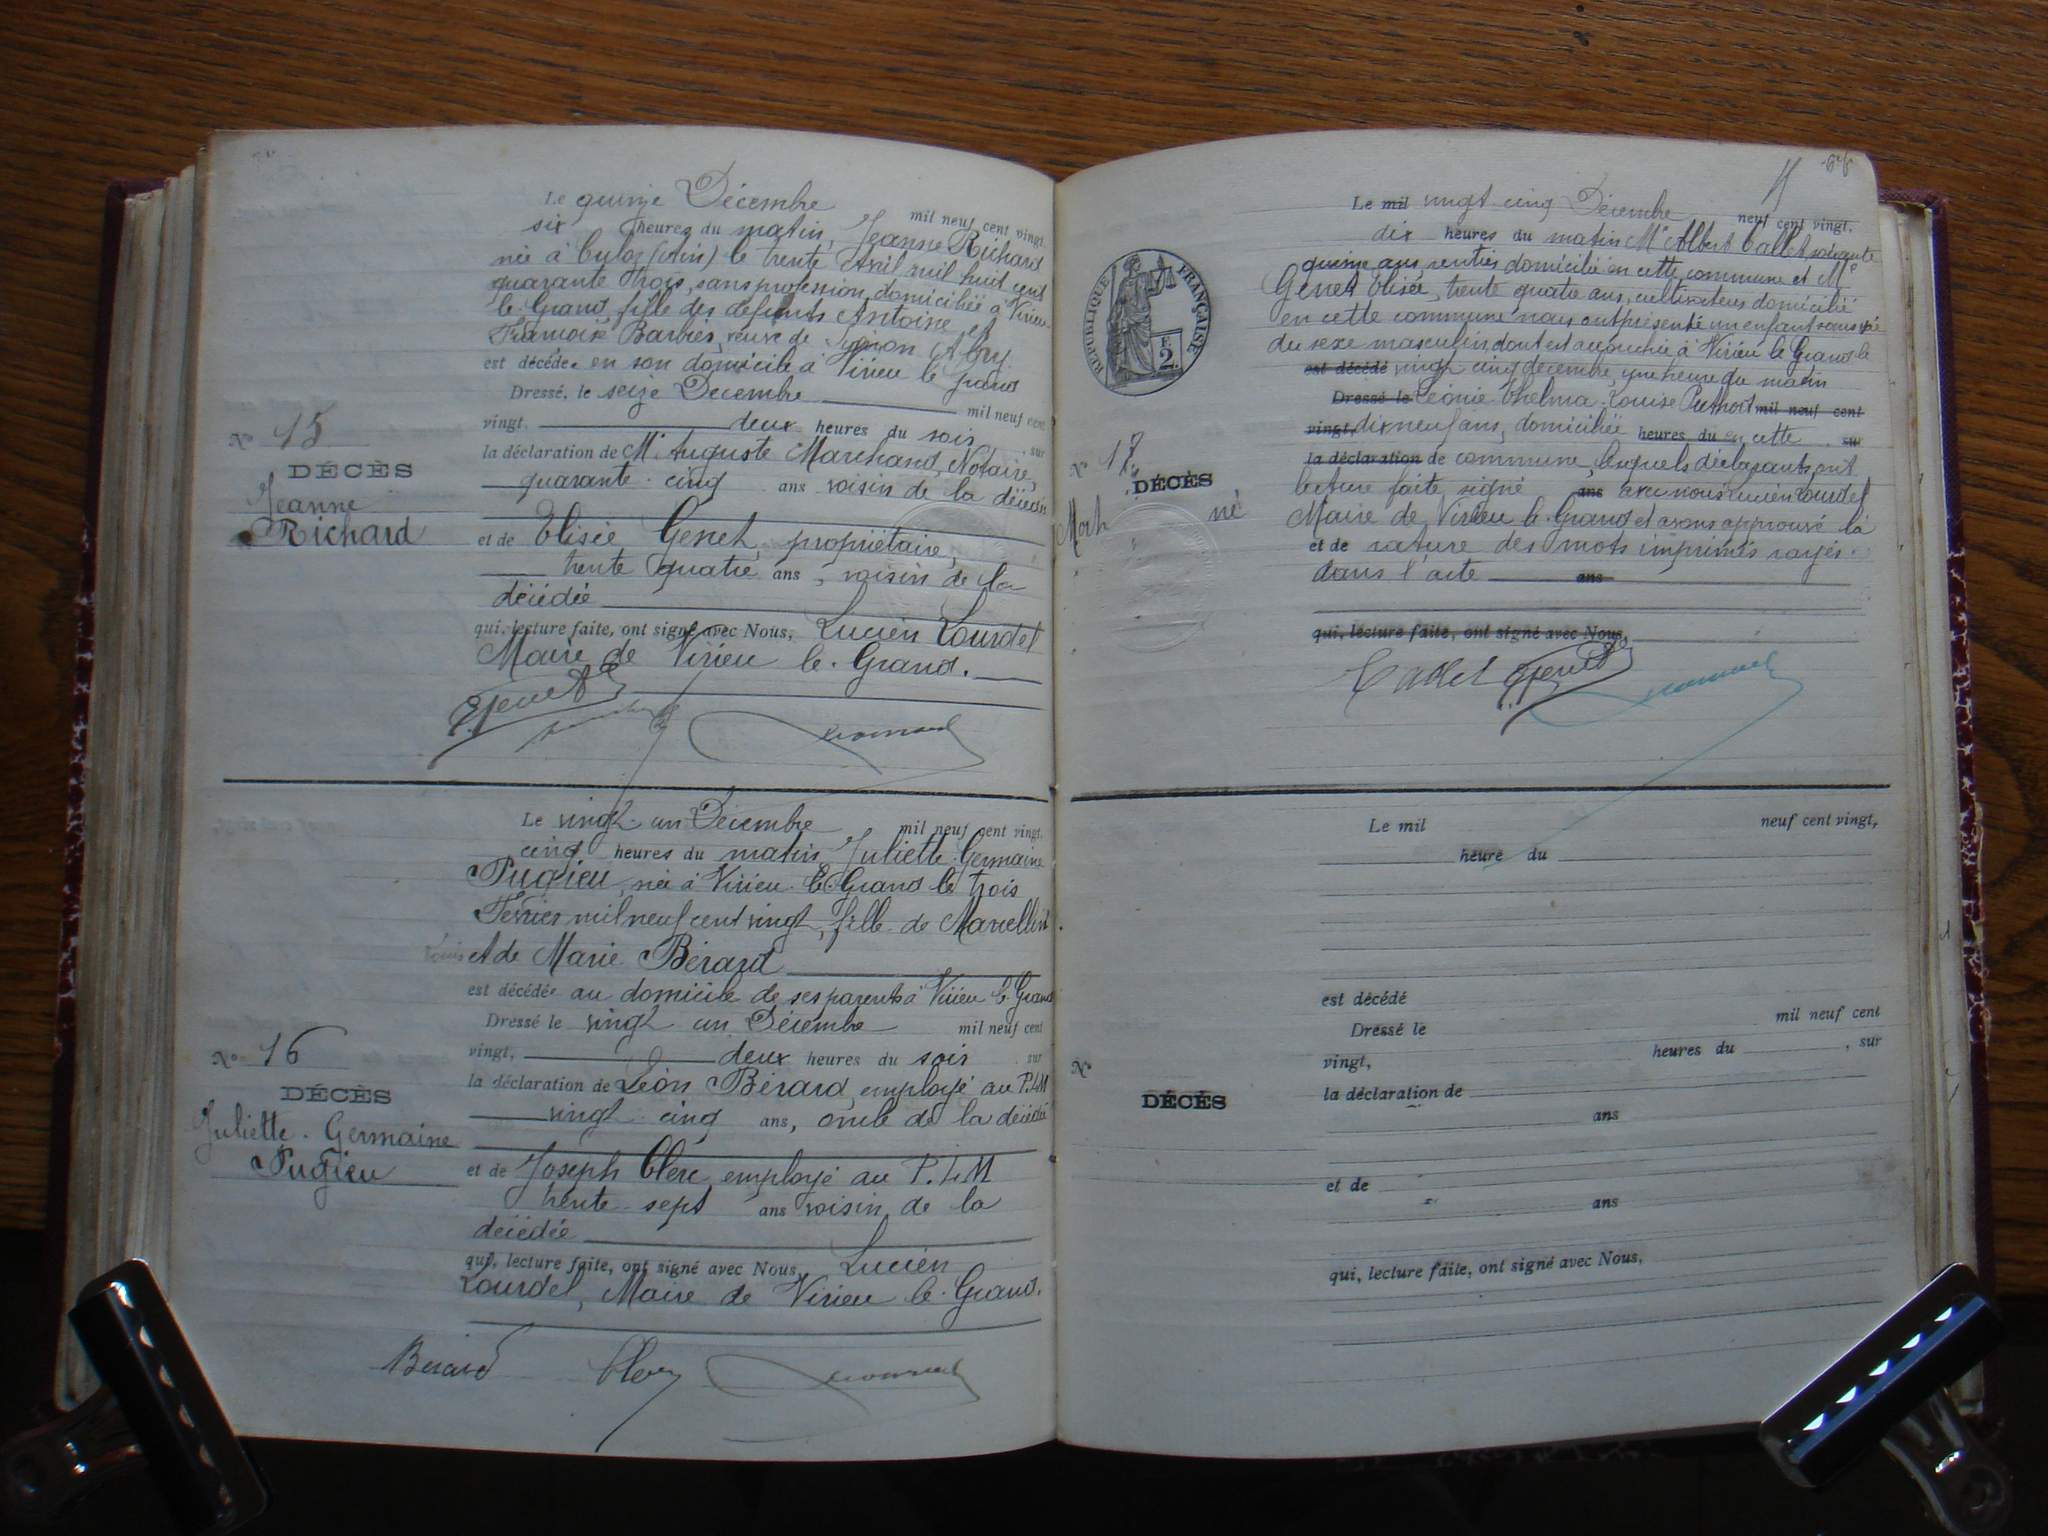 Le quinze Décembre mil neuf cent vingt.
six heures du matin, Jeanne Richard
née à Culoz (Ain) le trente Avril mil huit cent
quarante trois, sans profession, domiciliée à Virieu-
le-Grand, fille des défunts Antoine et
Françoise Barbier, veuve de Abry
est décédée en son domicile à Virieu le grand
Dressé, le seize Décembre mil neuf cent
vingt, deux heures du soir, sur
la déclaration de Mr Auguste Marchand, Notaire,
quarante-cinq ans voisin de la décédée
et de Elisée Genet, propriétaire,
trente quatre ans, voisin de la
décédée
qui, lecture faite, ont signé avec Nous, Lucien Lourdel
Maire de Virieu le-Grand.
N° 15
DÉCÈS
Jeanne
Richard
EGenet
Le vingt-un Décembre mil neuf cent vingt,
cinq heures du matin, Juliette Germaine
Pugieu, née à Virieu-le-Grand le trois
Février mil neuf cent vingt, fille de Marcellin
Louis et de Marie Bérard
est décédée au domicile de ses parents à Virieu le-Grand
Dressé le vingt un Décembre mil neuf cent
vingt, deux heures du soir, sur
la déclaration de Léon Bérard, employé au P.L.M
vingt-cinq ans, oncle de la décédée
et de Joseph Clerc, employé au P.L.M
trente-sept ans voisin de la
décédée
qui, lecture faite, ont signé avec Nous, Lucien
Lourdel, Maire de Virieu le-Grand.
N° 16
DÉCÈS
Juliette-Germaine
Pugieu
Berard Clerc
RÉPUBLIQUE FRANÇAISE
F.
2.
Le mil vingt cinq Décembre neuf cent vingt,
dix heures du matin Mr Albert Callet, soixante
quinze ans, rentier domicilié en cette commune et Mr
Genet Elisée, trente quatre ans, cultivateur domicilié
en cette commune nous ont présenté un enfant sans vie
du sexe masculin dont est accouchée à Virieu le Grand le
est décédé vingt cinq décembre, une heure du matin
Dressé le Léonie Thelma Louise mil neuf cent
vingt, dix neuf ans, domiciliée heures du en cette sur
la déclaration de commune, lesquels déclarants, ont
lecture faite signé ans avec nous Lucien Lourdel
Maire de Virieu le-Grand et avons approuvé la
et de rature des mots imprimés rayés
dans l'acte ans
qui, lecture faite, ont signé avec Nous,
N° 17
DÉCÈS
Mort né
EGenet
Le mil neuf cent vingt,
heure du
est décédé
Dressé le mil neuf cent
vingt, heures du , sur
la déclaration de
ans
et de
ans
qui, lecture faite, ont signé avec Nous,
N°
DÉCÈS